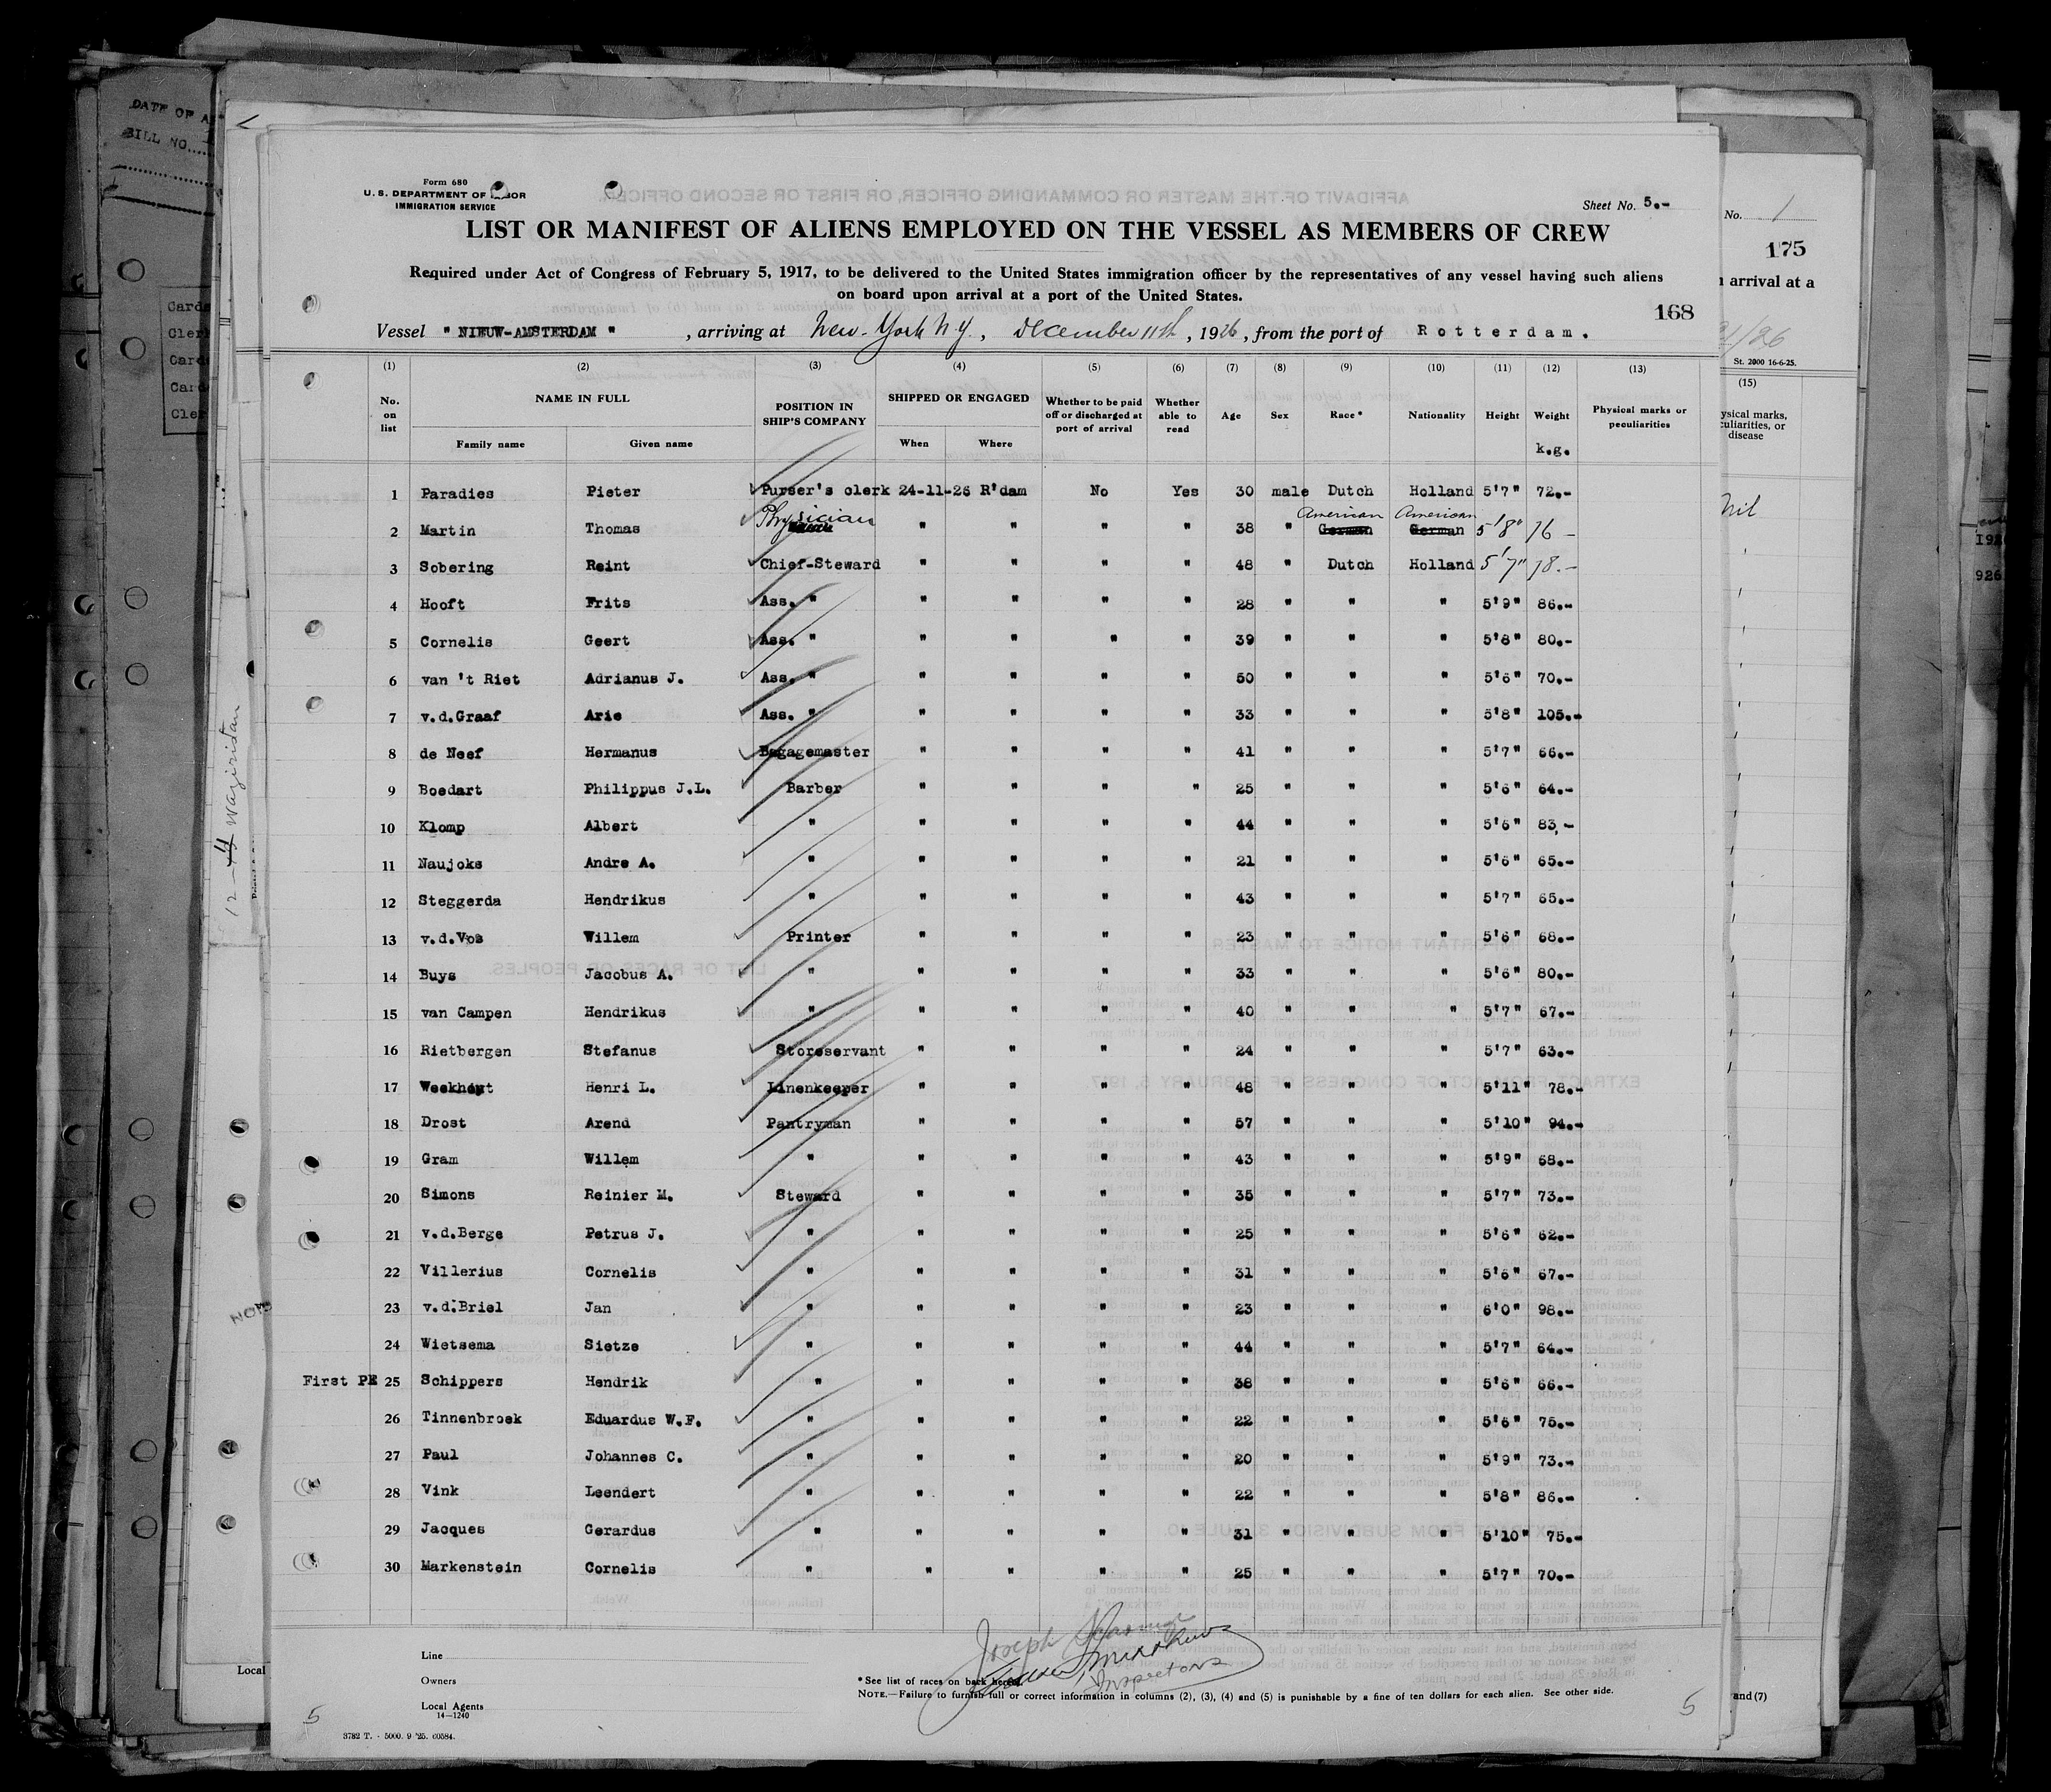 Form 680
U. S. DEPARTMENT OF LABOR
IMMIGRATION SERVICE
Sheet No. 5.-
LIST OR MANIFEST OF ALIENS EMPLOYED ON THE VESSEL AS MEMBERS OF CREW
Required under Act of Congress of February 5, 1917, to be delivered to the United States immigration officer by the representatives of any vessel having such aliens
on board upon arrival at a port of the United States.
168
Vessel " NIEUW-AMSTERDAM " , arriving at New-York N.Y., December 11th, 1926, from the port of Rotterdam.
(1) (2) (3) (4) (5) (6) (7) (8) (9) (10) (11) (12) (13)
No. on list NAME IN FULL Family name Given name POSITION IN SHIP'S COMPANY SHIPPED OR ENGAGED When Where Whether to be paid off or discharged at port of arrival Whether able to read Age Sex Race* Nationality Height Weight k.g. Physical marks or peculiarities
1 Paradies Pieter Purser's clerk 24-11-26 R'dam No Yes 30 male Dutch Holland 5'7" 72.-
American American
2 Martin Thomas Physician " " " " 38 " German German 5'8" 76 -
3 Sobering Reint Chief-Steward " " " " 48 " Dutch Holland 5'7" 78.-
4 Hooft Frits Ass. " " " " " 28 " " " 5'9" 86.-
5 Cornelis Geert Ass. " " " " " 39 " " " 5'8" 80.-
6 van 't Riet Adrianus J. Ass. " " " " " 50 " " " 5'6" 70.-
7 v.d.Graaf Arie Ass. " " " " " 33 " " " 5'8" 105.-
8 de Neef Hermanus Bagagemaster " " " " 41 " " " 5'7" 66.-
9 Boedart Philippus J.L. Barber " " " " 25 " " " 5'6" 64.-
10 Klomp Albert " " " " " 44 " " " 5'6" 83,-
11 Naujoks Andre A. " " " " " 21 " " " 5'6" 65.-
12 Steggerda Hendrikus " " " " " 43 " " " 5'7" 65.-
13 v.d.Vos Willem Printer " " " " 23 " " " 5'6" 68.-
14 Buys Jacobus A. " " " " " 33 " " " 5'6" 80.-
15 van Campen Hendrikus " " " " " 40 " " " 5'7" 67.-
16 Rietbergen Stefanus Storeservant " " " " 24 " " " 5'7" 63.-
17 Henri L. Linenkeeper " " " " 48 " " " 5'11" 78.-
18 Drost Arend Pantryman " " " " 57 " " " 5'10" 94.-
19 Gram Willem " " " " " 43 " " " 5'9" 68.-
20 Simons Reinier M. Steward " " " " 35 " " " 5'7" 73.-
21 v.d.Berge Petrus J. " " " " " 25 " " " 5'6" 62.-
22 Villerius Cornelis " " " " " 31 " " " 5'6" 67.-
23 v.d.Briel Jan " " " " " 23 " " " 6'0" 98.-
24 Wietsema Sietze " " " " " 44 " " " 5'7" 64.-
First PE 25 Schippers Hendrik " " " " " 38 " " " 5'6" 66.-
26 Tinnenbroek Eduardus W.F. " " " " " 22 " " " 5'6" 75.-
27 Paul Johannes C. " " " " " 20 " " " 5'9" 73.-
28 Vink Leendert " " " " " 22 " " " 5'8" 86.-
29 Jacques Gerardus " " " " " 31 " " " 5'10" 75.-
30 Markenstein Cornelis " " " " " 25 " " " 5'7" 70.-
Joseph
Inspectors
Line
Owners
Local Agents
14—1240
* See list of races on back hereof.
NOTE.—Failure to furnish full or correct information in columns (2), (3), (4) and (5) is punishable by a fine of ten dollars for each alien. See other side.
5
5
3782 T. - 5000. 9 '25. 60584.
DATE OF A
BILL NO.....
Cards
Clerk
Cards
Card
Cler
12 - 4 Waziristan
Local
No. 1
175
arrival at a
/26
St. 2000 16-6-25.
(15)
ysical marks,
culiarities, or
disease
Nil
192
926
and (7)